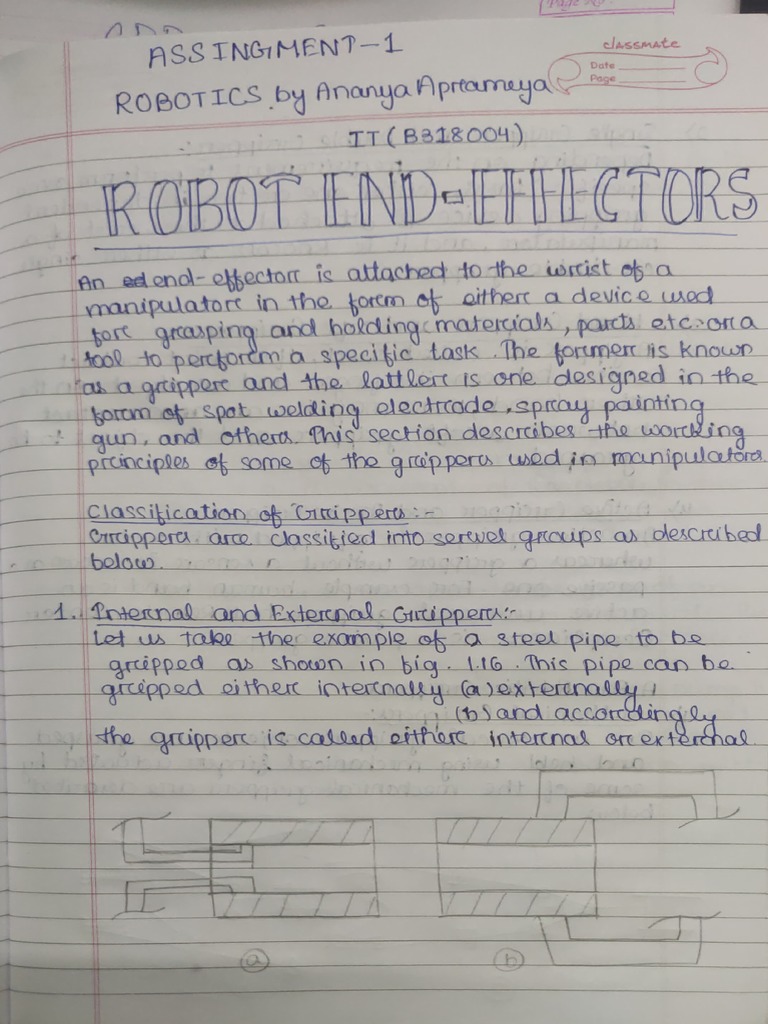 ASSINGMENT-1
classmate
Date
Page
ROBOTICS by Ananya Aprameya
IT (B318004)
ROBOT END-EFFECTORS
An end-effector is attached to the wrist of a
manipulator in the form of either a device used
for grasping and holding materials, parts etc. or a
tool to perform a specific task. The former is known
as a gripper and the lattler is one designed in the
form of spot welding electrode, spray painting
gun, and others. This section describes the working
principles of some of the grippers used in manipulators.
Classification of Grippers:-
Grippers are classified into serwel groups as described
below.
1. Internal and External Grippers:-
Let us take the example of a steel pipe to be
gripped as shown in fig. 1.16. This pipe can be
gripped either internally (a) externally,
(b) and accordingly
the gripper is called either internal or external.
a
b